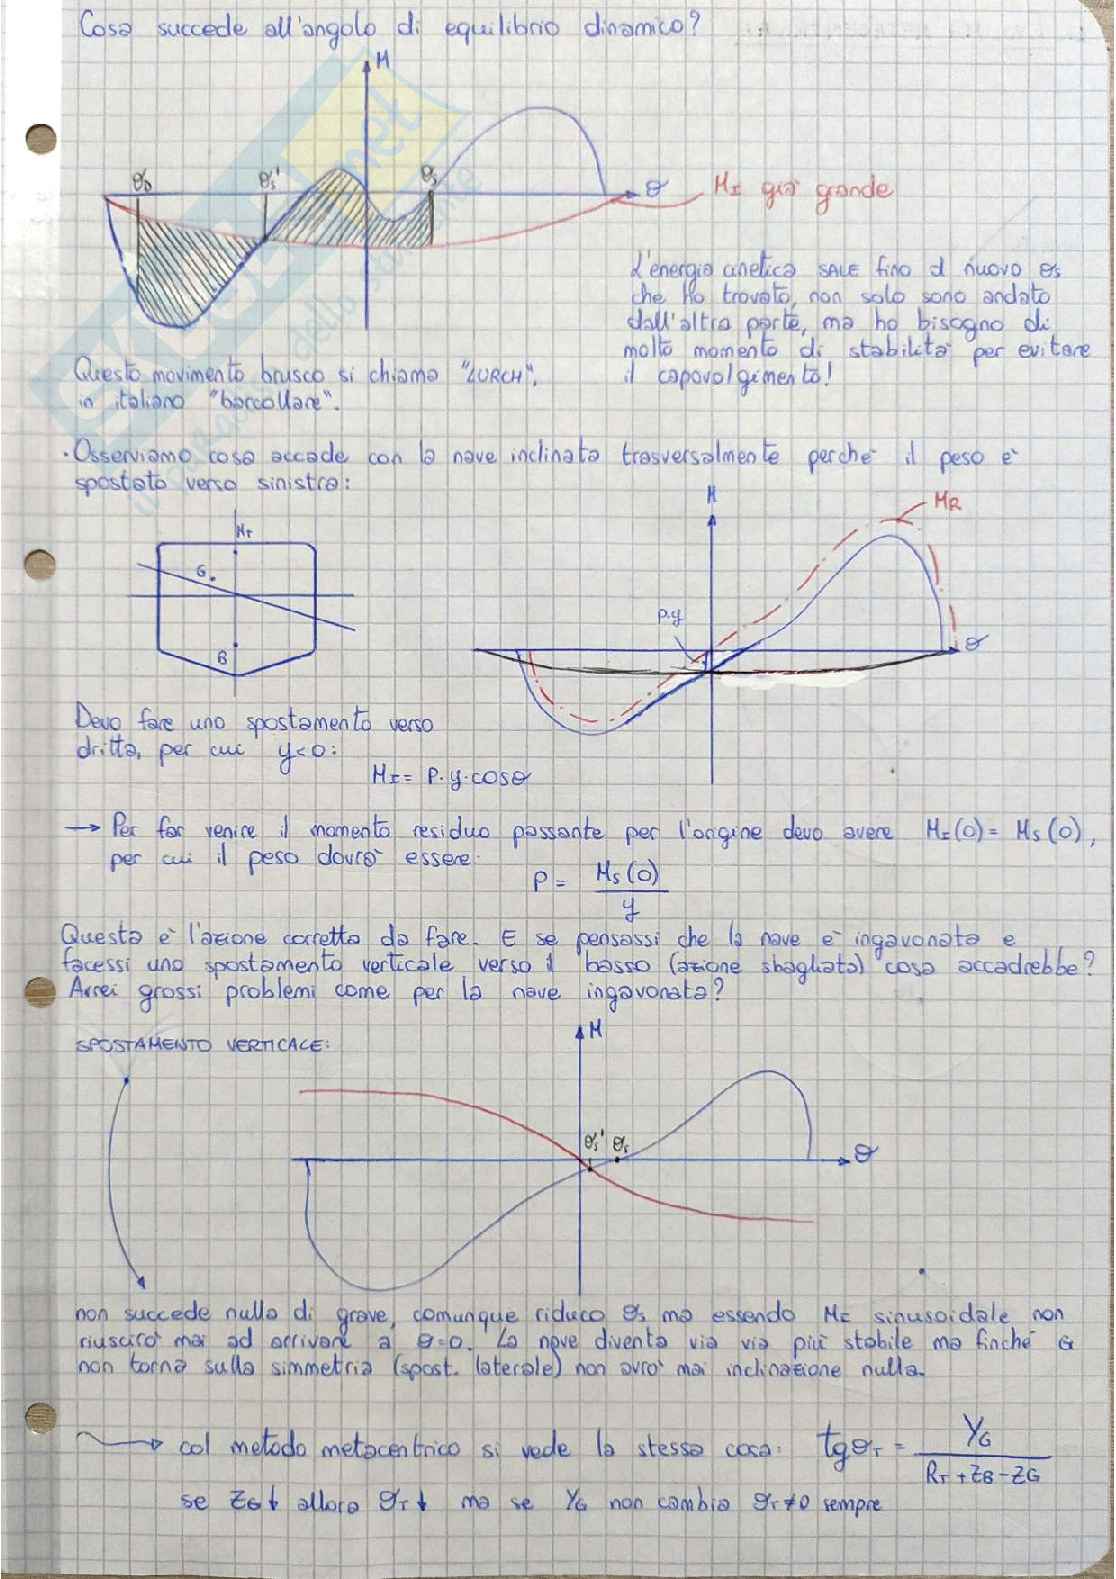 Cosa succede all'angolo di equilibrio dinamico?
M
θD
θs'
θs
θ
MI già grande
L'energia cinetica SALE fino al nuovo θs
che ho trovato, non solo sono andato
dall'altra parte, ma ho bisogno di
molto momento di stabilità per evitare
il capovolgimento!
Questo movimento brusco si chiama "LURCH",
in italiano "barcollare".
· Osserviamo cosa accade con la nave inclinata trasversalmente perchè il peso è
spostato verso sinistra:
MT
G
B
M
MR
P.y
θ
Devo fare uno spostamento verso
dritta, per cui y<0:
MI = P·y·cosθ
→ Per far venire il momento residuo passante per l'origine devo avere MI(0) = MS(0),
per cui il peso dovrà essere:
P = MS(0) / y
Questa è l'azione corretta da fare. E se pensassi che la nave è ingavonata e
facessi uno spostamento verticale verso il basso (azione sbagliata) cosa accadrebbe?
Avrei grossi problemi come per la nave ingavonata?
SPOSTAMENTO VERTICALE:
M
θs'
θs
θ
non succede nulla di grave, comunque riduco θs ma essendo MI sinusoidale non
riuscirò mai ad arrivare a θ=0. La nave diventa via via più stabile ma finchè G
non torna sulla simmetria (spost. laterale) non avrò mai inclinazione nulla.
→ col metodo metacentrico si vede la stessa cosa: tgθT = YG / RT + ZB - ZG
se ZG↓ allora θT↓ ma se YG non cambia θT≠0 sempre